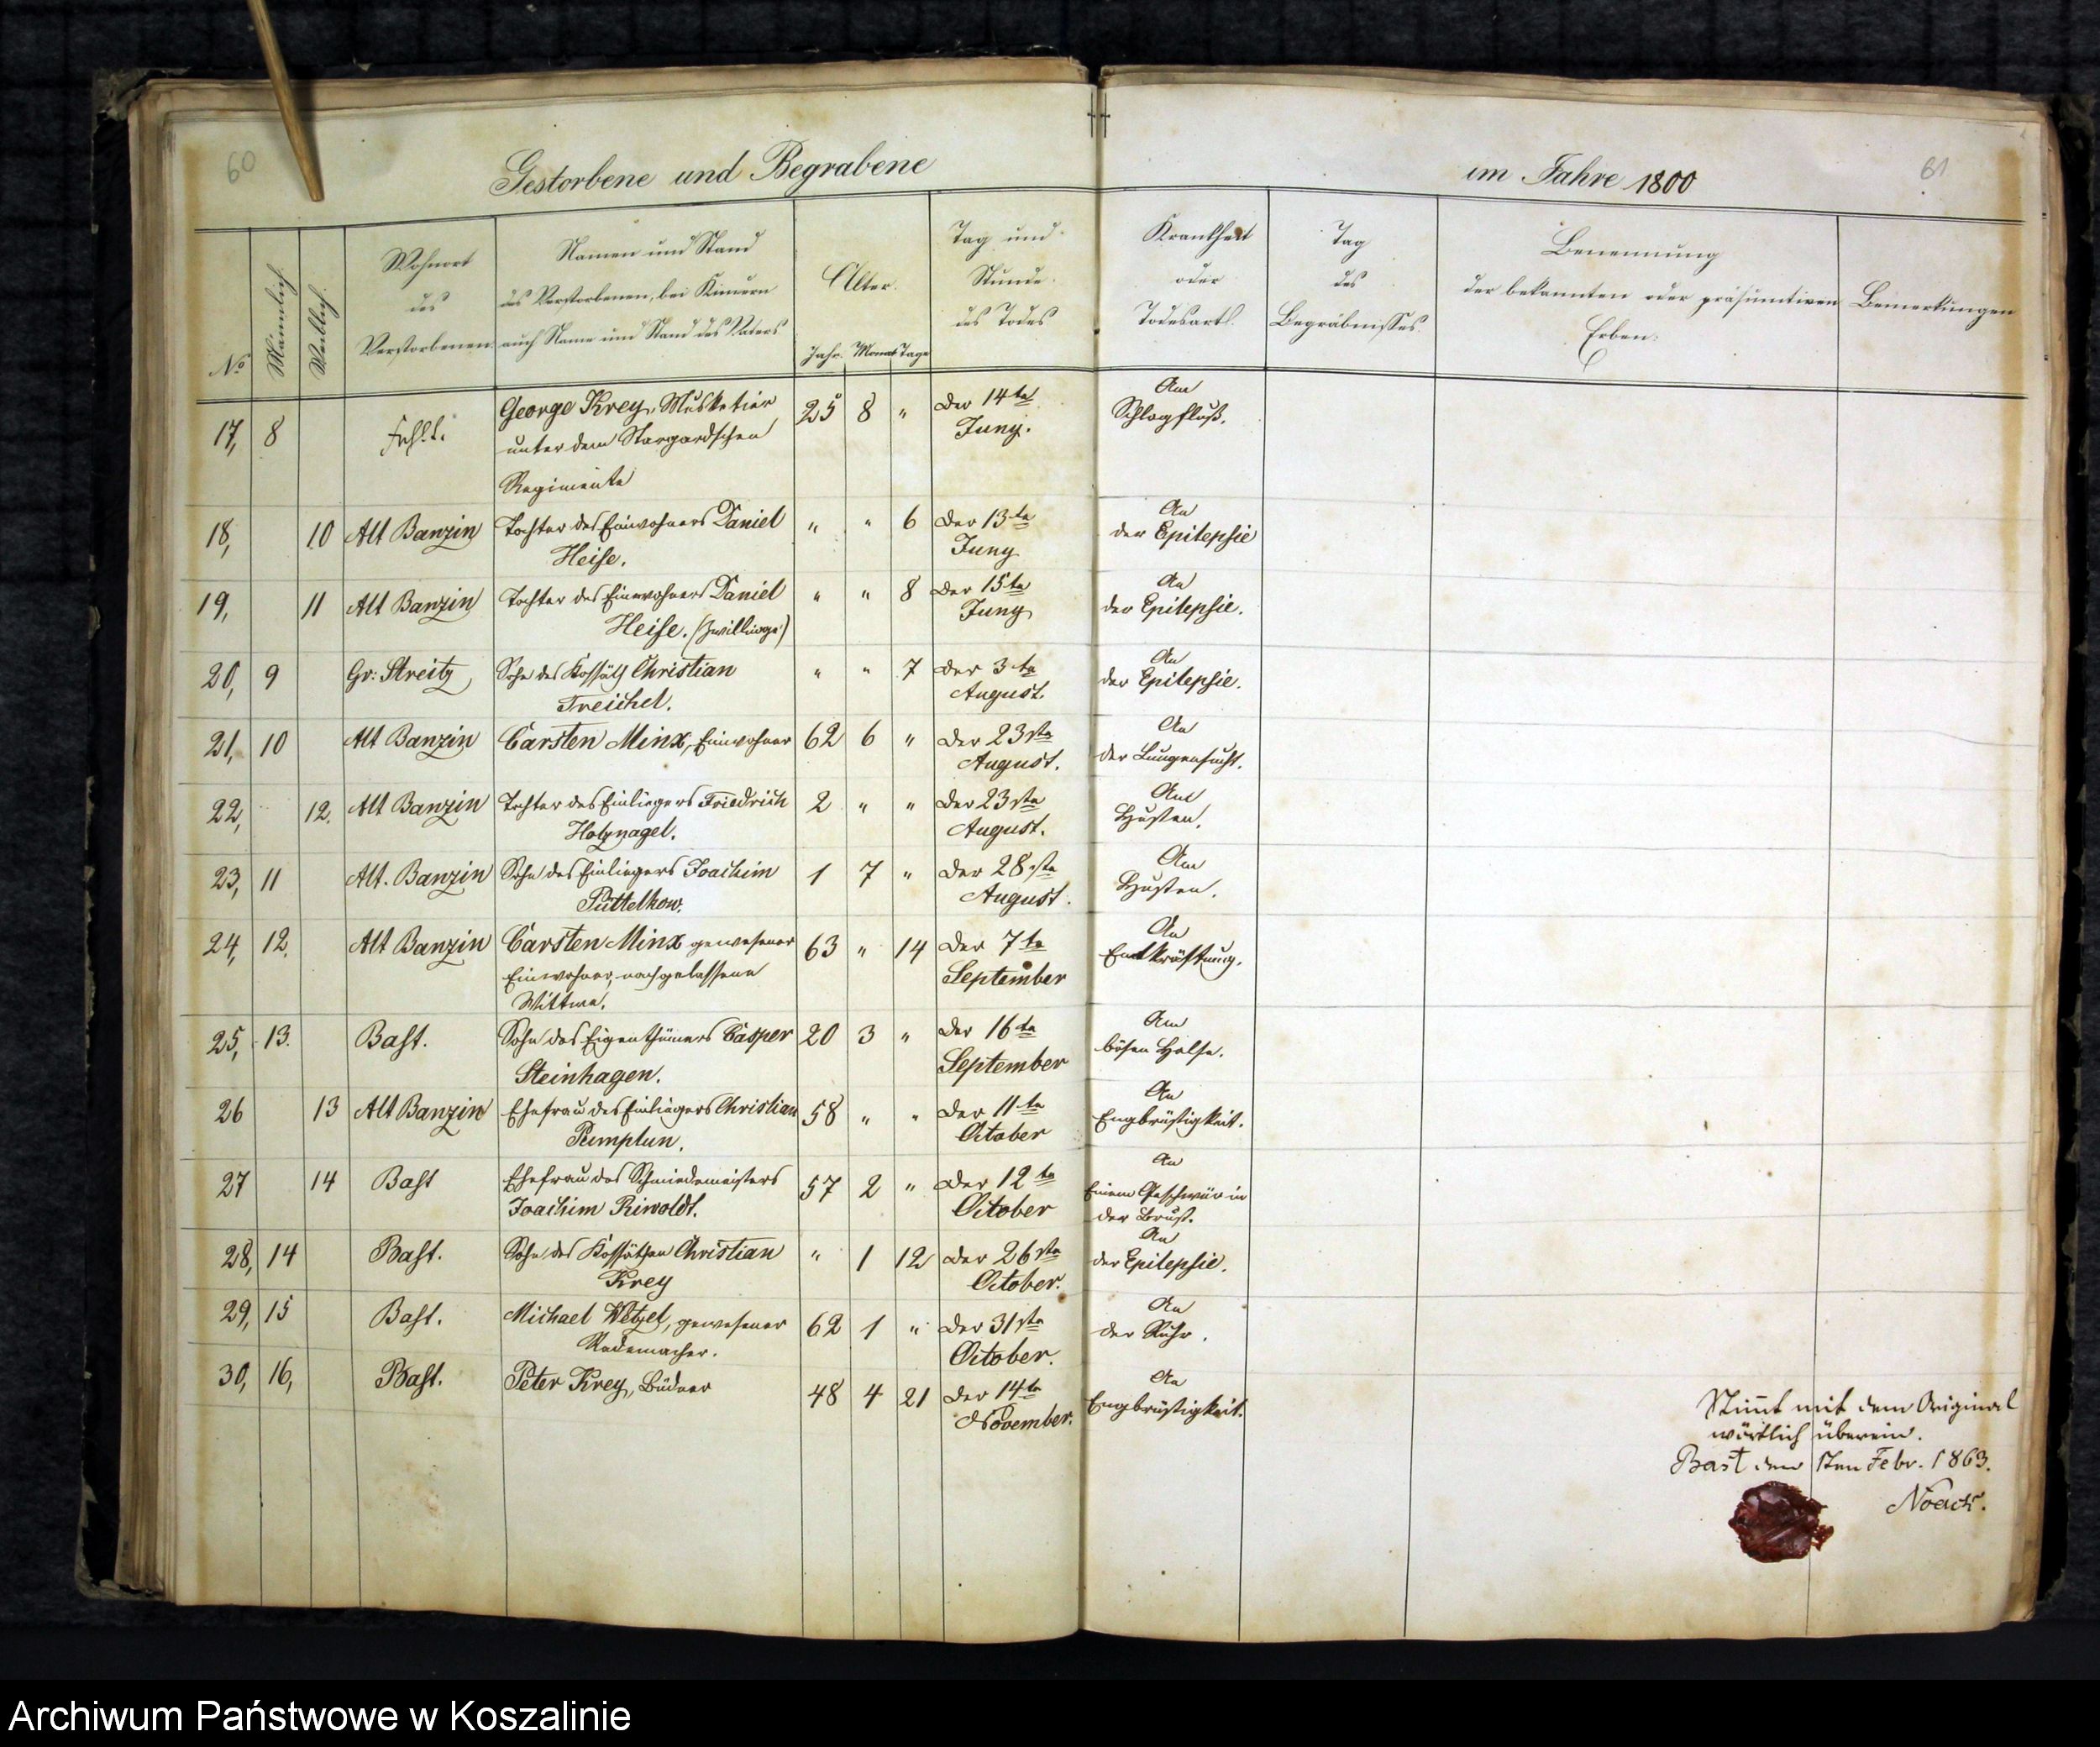 60
Gestorbene und Begrabene
im Jahre 1800
61
No
Männlich.
Weiblich.
Wohnort
des
Verstorbenen.
Namen und Stand
des Verstorbenen, bei Kindern
auch Name und Stand des Vaters
Alter.
Jahr. Monat Tage
Tag und
Stunde
des Todes
Krankheit
oder
Todesart.
Tag
des
Begräbnisses.
Benennung
der bekannten oder präsumtiven
Erben.
Bemerkungen
17, 8 Fehlt. George Krey, Musketier 25 8 " Der 14te Am
unter dem Stargardschen Juny. Schlagfluß.
Regimente
18, 10 Alt Banzin Tochter des Einwohners Daniel " " 6 Der 13te An
Heise. Juny der Epilepsie
19, 11 Alt Banzin Tochter des Einwohners Daniel " " 8 Der 15te An
Heise. (Zwillinge) Juny der Epilepsie.
20, 9 Gr: Streitz Sohn des Kossäth Christian " " 7 Der 3te An
Treichel. August. der Epilepsie.
21, 10 Alt Banzin Carsten Minx, Einwohner 62 6 " Der 23ste An
August. der Lungensucht.
22, 12. Alt Banzin Tochter des Einliegers Friedrich 2 " " Der 23ste Am
Holznagel. August. Husten.
23, 11 Alt. Banzin Sohn des Einliegers Joachim 1 7 " Der 28ste Am
Püttelkow. August. Husten.
24, 12. Alt Banzin Carsten Minx gewesener 63 " 14 Der 7te An
Einwohner, nachgelassene September Entkräftung.
Wittwe.
25, 13. Bast. Sohn des Eigenthümers Casper 20 3 " Der 16te Am
Steinhagen. September bösen Halse.
26 13 Alt Banzin Ehefrau des Einliegers Christian 58 " " Der 11te An
Pumplun. October Engbrüstigkeit.
27 14 Bast Ehefrau des Schmiedemeisters 57 2 " Der 12te An
Joachim Rewoldt. October Einem Geschwür in
der Brust.
28, 14 Bast. Sohn des Kossäthen Christian " 1 12 Der 26ste An
Krey October. der Epilepsie.
29, 15 Bast. Michael Wetzel, gewesener 62 1 " Der 31ste An
Rademacher. October. der Ruhr.
30, 16, Bast. Peter Krey, Büdner 48 4 21 Der 14te An
November. Engbrüstigkeit.
Stimmt mit dem Original
wörtlich überein.
Bast den 1ten Febr. 1863.
Noack.
Archiwum Państwowe w Koszalinie